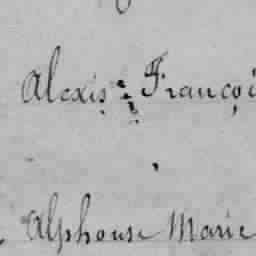 Alexis Françoi
Alphonse Marie